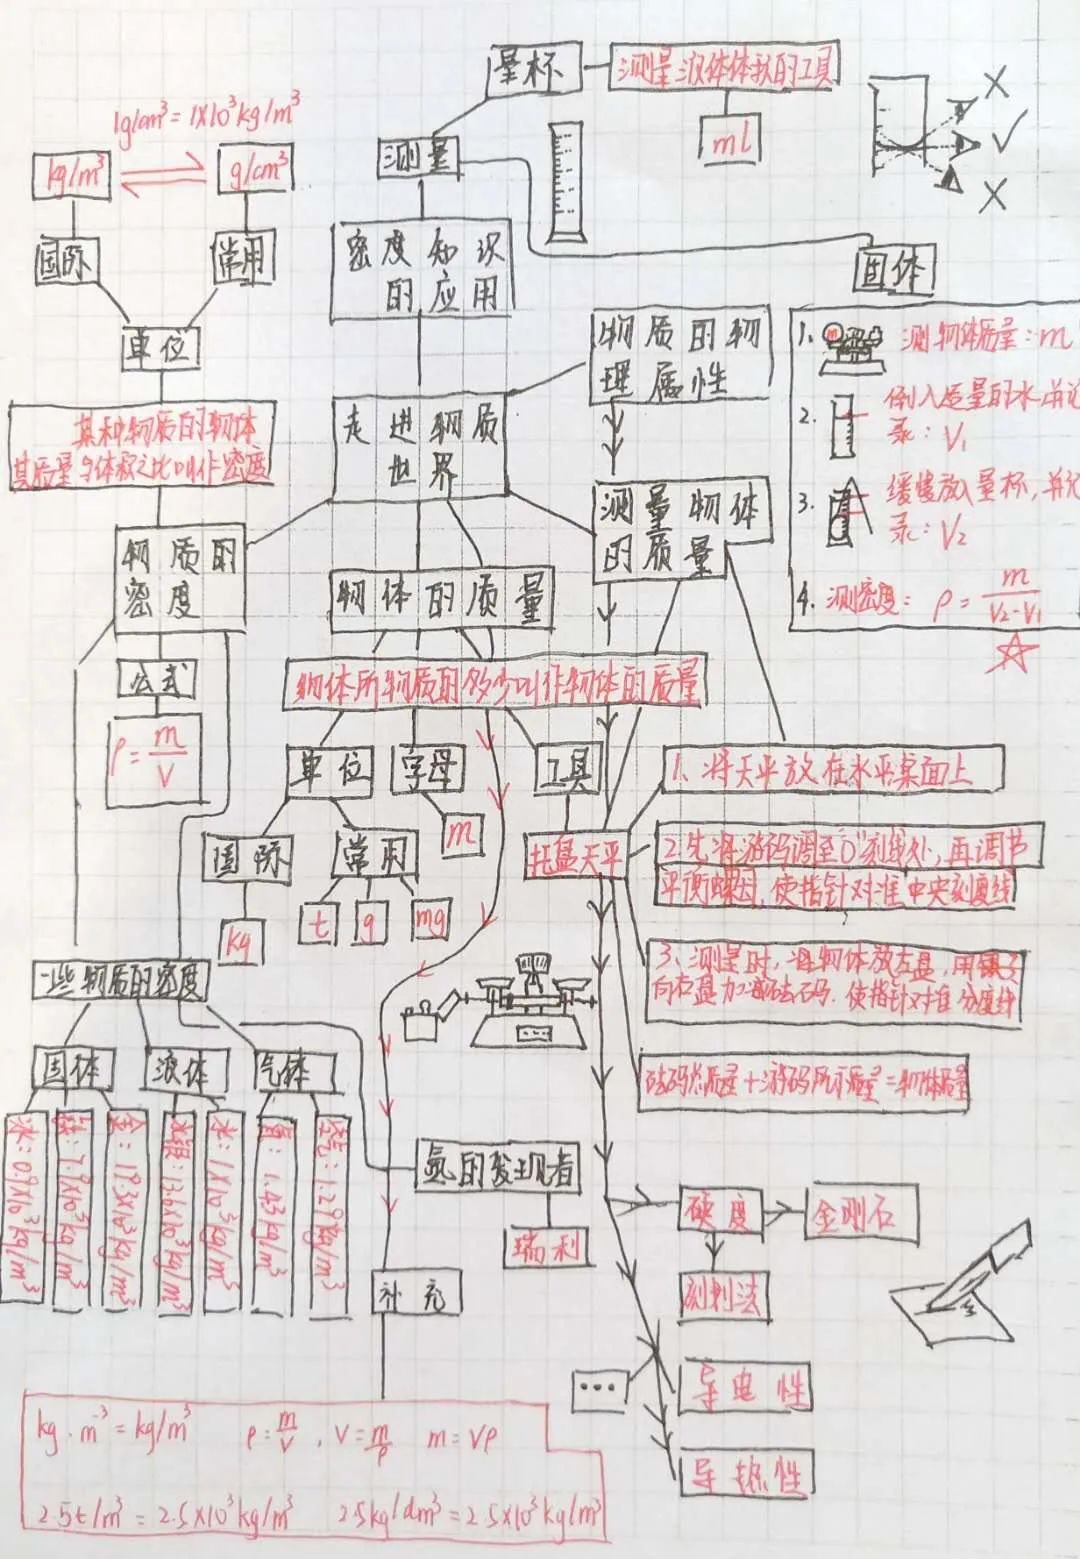 量杯
测量液体体积的工具
ml
1g/cm³=1×10³kg/m³
kg/m³
g/cm³
测量
国际
常用
密度知识
的应用
固体
单位
物质的物
理属性
1.
测物体质量:m
2.
倒入适量的水,并记
录:V₁
3.
缓慢放入量杯,并记
录:V₂
4.测密度:ρ=m/V₂-V₁
某种物质的物体
其质量与体积之比叫作密度
走进物质
世界
测量物体
的质量
物质的
密度
物体的质量
公式
ρ=m/V
物体所物质的多少叫作物体的质量
单位
字母
工具
国际
常用
m
kg
t
g
mg
托盘天平
1、将天平放在水平桌面上
2.先将游码调至"0"刻线处,再调节
平衡螺母,使指针对准中央刻度线
3、测量时,将物体放左盘,用镊子
向右盘加减砝码.使指针对准分度线
砝码总质量+游码所示质量=物体质量
一些物质的密度
固体
液体
气体
冰:0.9×10³kg/m³
铁:7.9×10³kg/m³
金:19.3×10³kg/m³
水银:13.6×10³kg/m³
水:1×10³kg/m³
氧:1.43kg/m³
空气:1.29kg/m³
氩的发现者
瑞利
硬度
金刚石
刻刺法
补充
...
导电性
导热性
kg·m⁻³=kg/m³
ρ=m/V,V=m/ρ m=Vρ
2.5t/m³=2.5×10³kg/m³
2.5kg/dm³=2.5×10³kg/m³